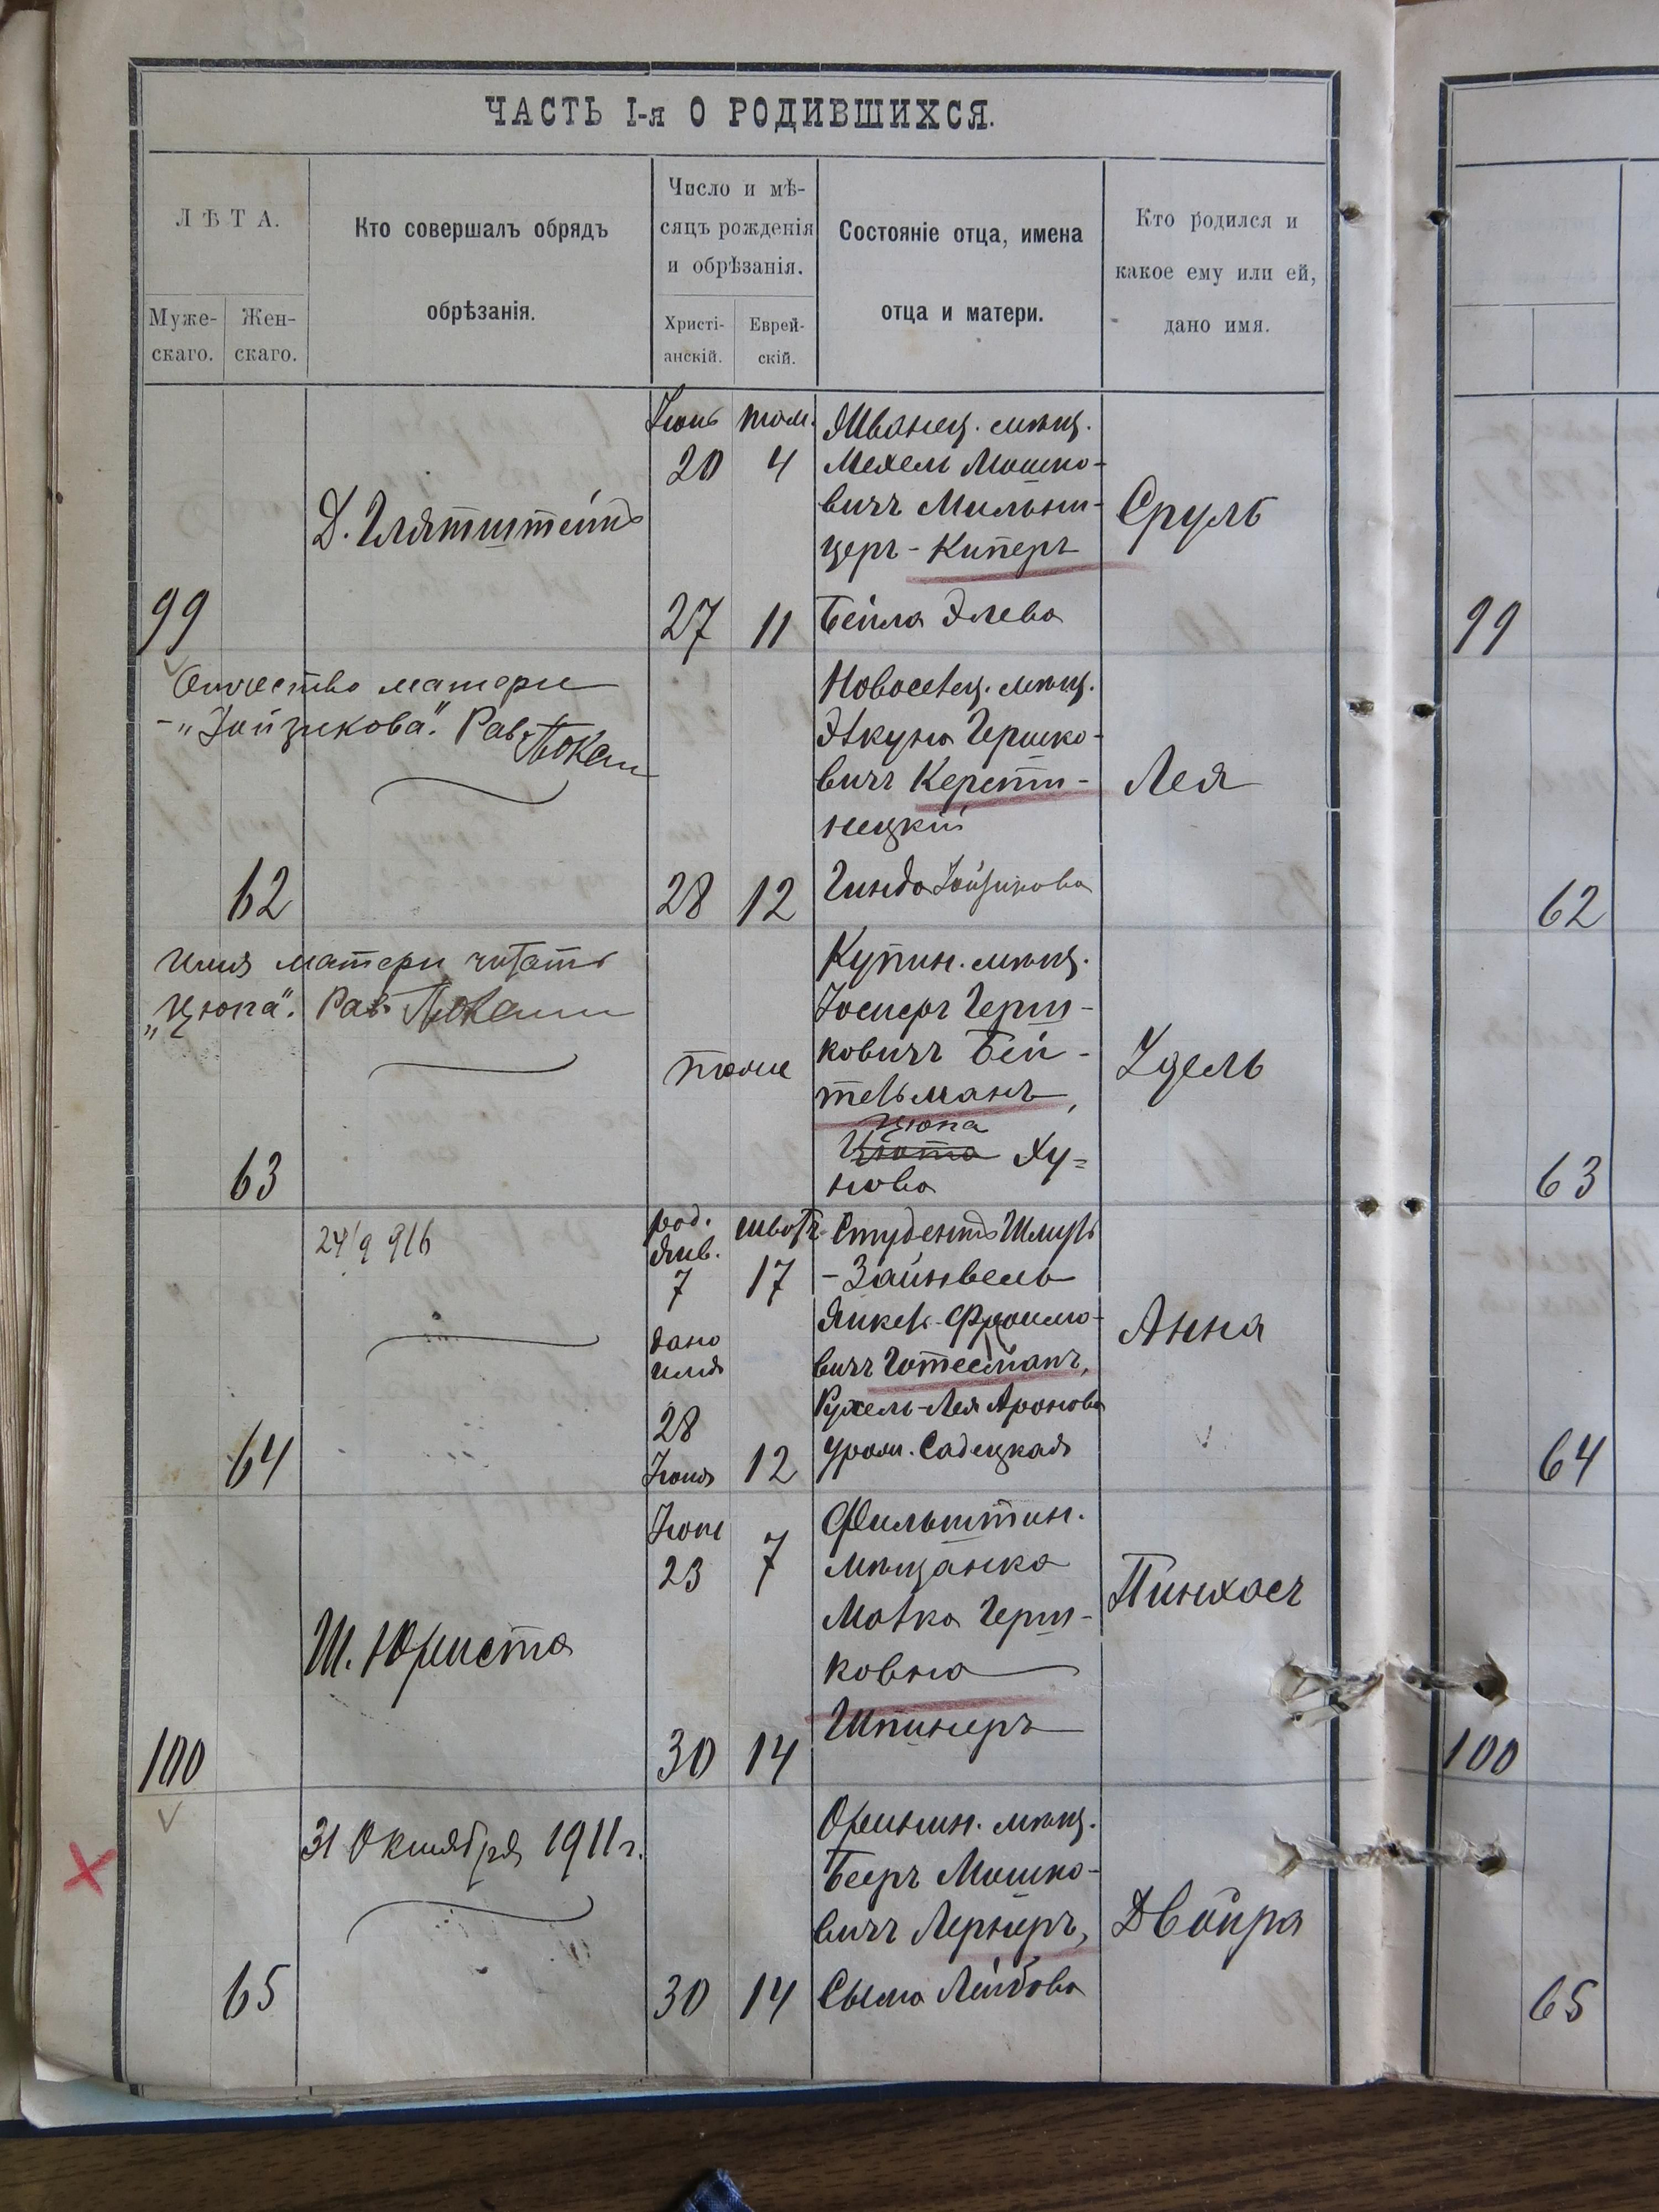 ЧАСТЬ I-я О РОДИВШИХСЯ.
ЛѢТА.
Муже-
скаго.
Жен-
скаго.
Кто совершалъ обрядъ
обрѣзанія.
Число и мѣ-
сяцъ рожденія
и обрѣзанія.
Христі-
анскій.
Еврей-
скій.
Состояніе отца, имена
отца и матери.
Кто родился и
какое ему или ей,
дано имя.
99
Д. Глятштейнъ
Іюнь
20
27
4
11
мѣщ.
Мехель Мошко-
вичъ Мильни-
церъ - Киперъ
Бейла Элева
Сруль
99
Отчество матери
- "Іойзикова". Рав.
62
28
12
Новосѣлец. мѣщ.
Гершко-
вичъ Керсти-
нецкій
Гинда Іойзикова
Лея
62
Имя матери читать
"Цюпа". Рав.
63
тоже
Купин. мѣщ.
Іосиеръ Герш-
ковичъ Бей-
тельманъ,
Цюпа
Ху-
нова
Идель
63
24/9 916
64
род.
Янв.
7
дано
имя
28
Іюня
17
12
Студентъ Шмуль
- Зайнвель
Янкель-Фроимо-
вичъ Готесманъ,
Рухель-Лея Аронова
урож. Садецкая
Анна
64
100
Ш. Юриста
23
30
7
14
мѣщанка
Малка Герш-
ковна
Шпинеръ
Пинхасъ
100
31 Октября 1911 г.
65
30
14
Оринин. мѣщ.
Бееръ Мошко-
вичъ Лернеръ,
Сыма Лейбова
Двойра
65